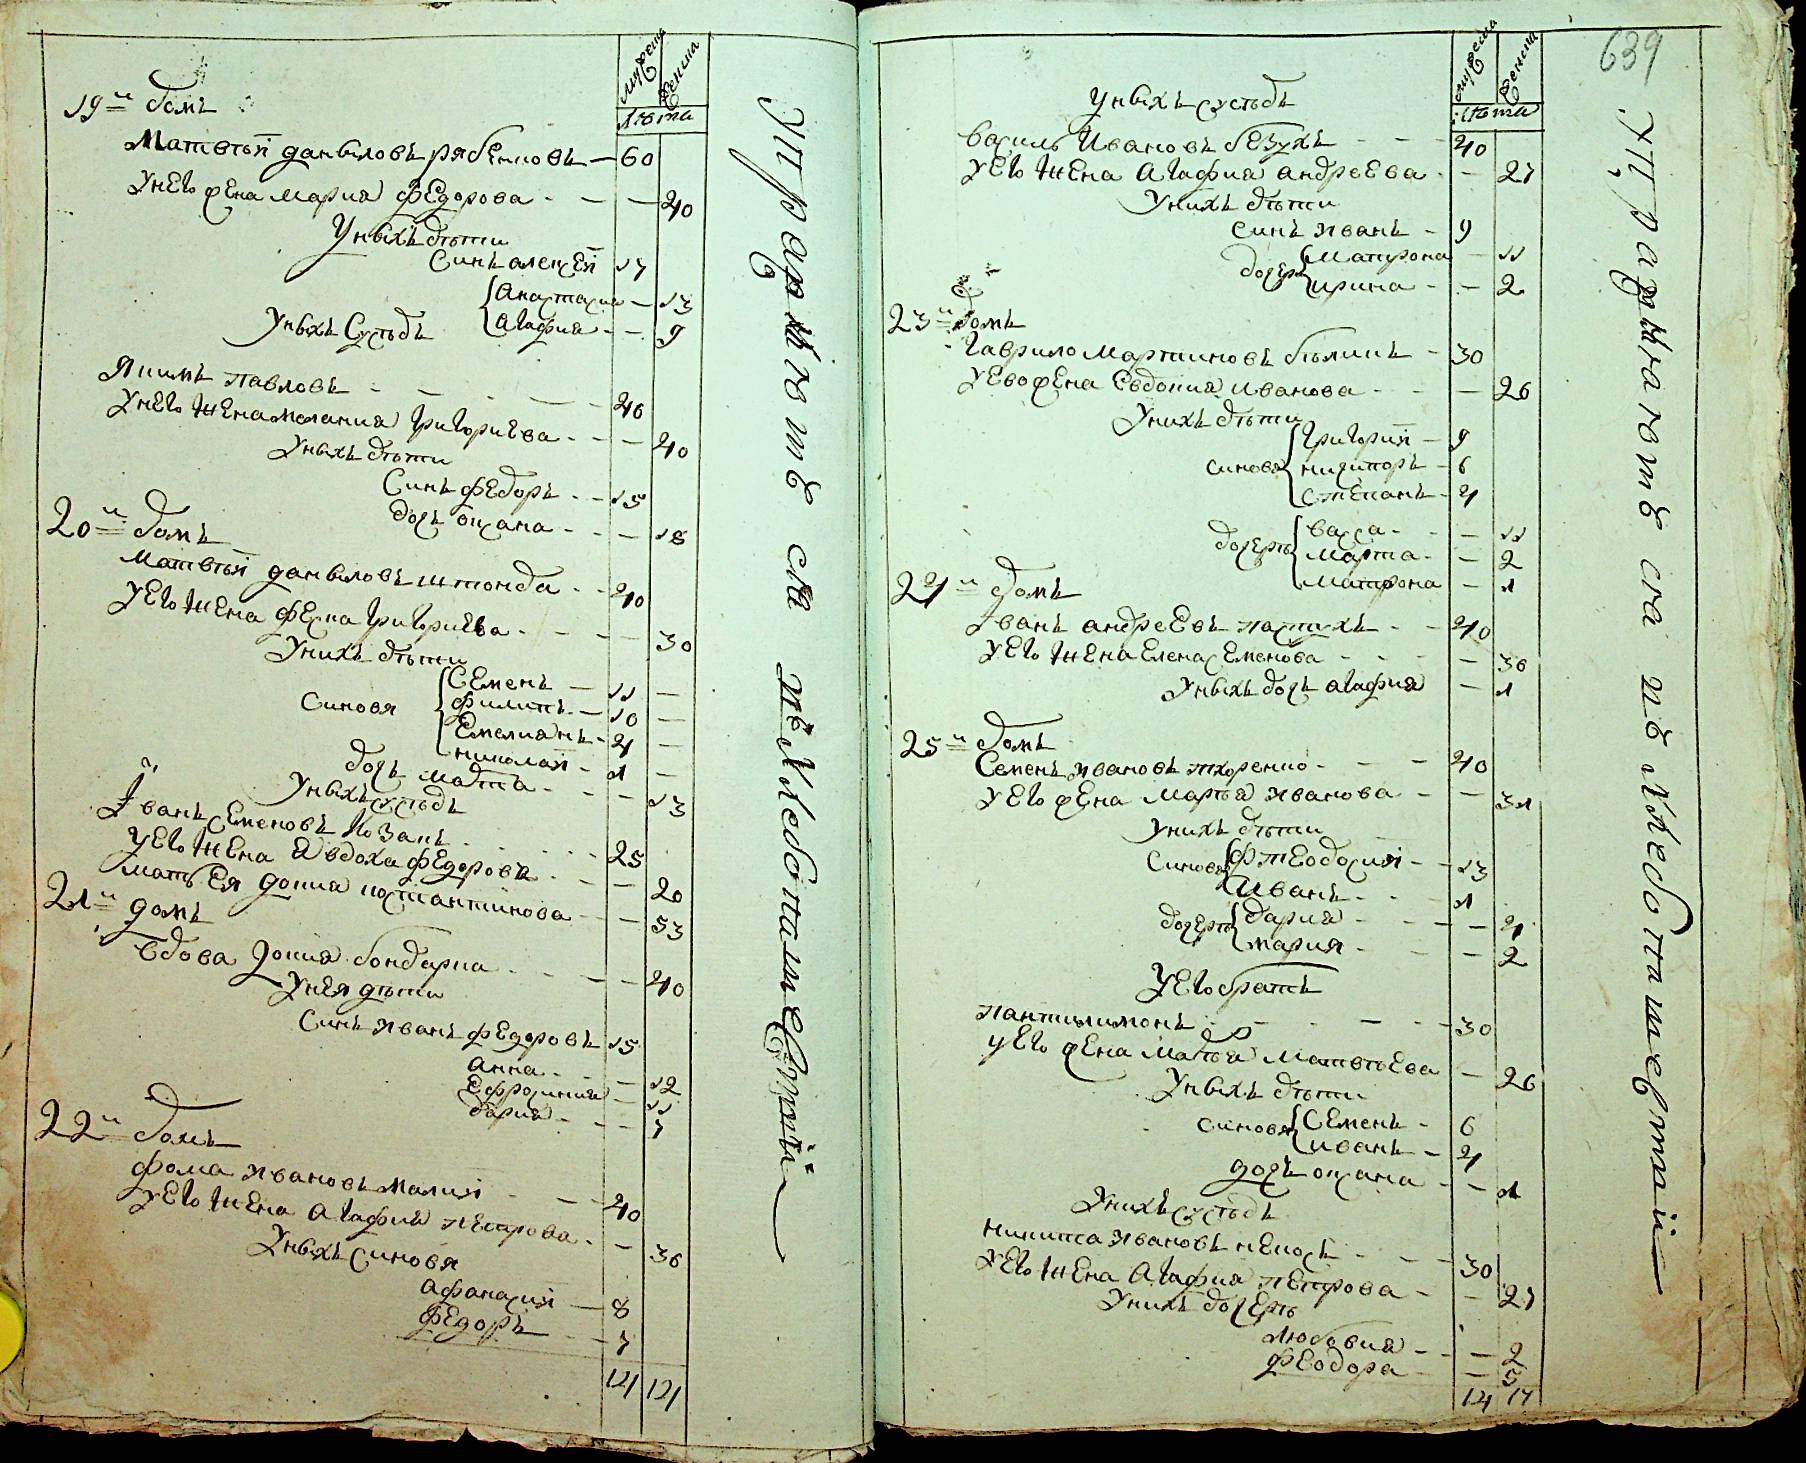 мужеска
женска
лѣта
19й домъ
Матвѣй даниловъ рябенковъ — 60
У него жена мария федорова — 40
У нихъ дѣти
Синъ алексей 17
Анастасия — 13
Агафия — 9
У нихъ Сусѣдъ
Якимъ павловъ — 40
У него жена мелания Григориева — 40
У нихъ дѣти
Синъ федоръ — 15
дочъ оксана — 18
20й домъ
матвѣй даниловъ штонда — 40
У его жена феска Григориева — 30
У нихъ дѣти
Синовя
Семенъ — 11 —
филипъ — 10 —
Емелианъ — 4 —
николай — 1 —
дочъ марта — 13
У нихъ сусѣдъ
Іванъ Семеновъ Козакъ — 25
У его жена Явдоха федорова — 20
мать Ея докия костантинова — 53
21й домъ
вдова докия бондарка — 40
У нея дѣти
Синъ иванъ федоровъ 15
Анна — 12
Ефросиния — 11
дария — 7
22й домъ
фома ивановъ малий — 40
У его жена Агафия петрова — 36
У нихъ синовя
афанасий — 8
федоръ — 7
14 14
639
мужеска
женска
лѣта
У нихъ сусѣдъ
Василь Ивановъ безухъ — 40
У его жена Агафия андреева — 27
У нихъ дѣти
синъ иванъ — 9
дочери
Матрона — 11
ирина — 2
23й домъ
Гаврило мартиновъ бѣликъ — 30
У его жена Евдокия иванова — 26
У нихъ дѣти
синовя
Григорий — 9
никифоръ — 6
степанъ — 4
дочерѣ
васса — 11
марта — 2
матрона — 1
24й домъ
Іванъ андреевъ пастухъ — 40
У его жена Елена Семенова — 36
У нихъ дочъ агафия — 1
25й домъ
Семенъ ивановъ тхоренко — 40
У его жена марфа иванова — 31
У нихъ дѣти
Синовя
феодосий — 13
Иванъ — 1
дочерѣ
дария — 4
мария — 2
У его братъ
пантилимонъ — 30
У его жена марфа Матвѣева — 26
У нихъ дѣти
синовя
Семенъ — 6
иванъ — 4
дочъ оксана — 1
У нихъ сусѣдъ
никита ивановъ — 30
У его жена Агафия петрова — 27
У нихъ дочерѣ
любовия — 2
феодора — 5
14 17